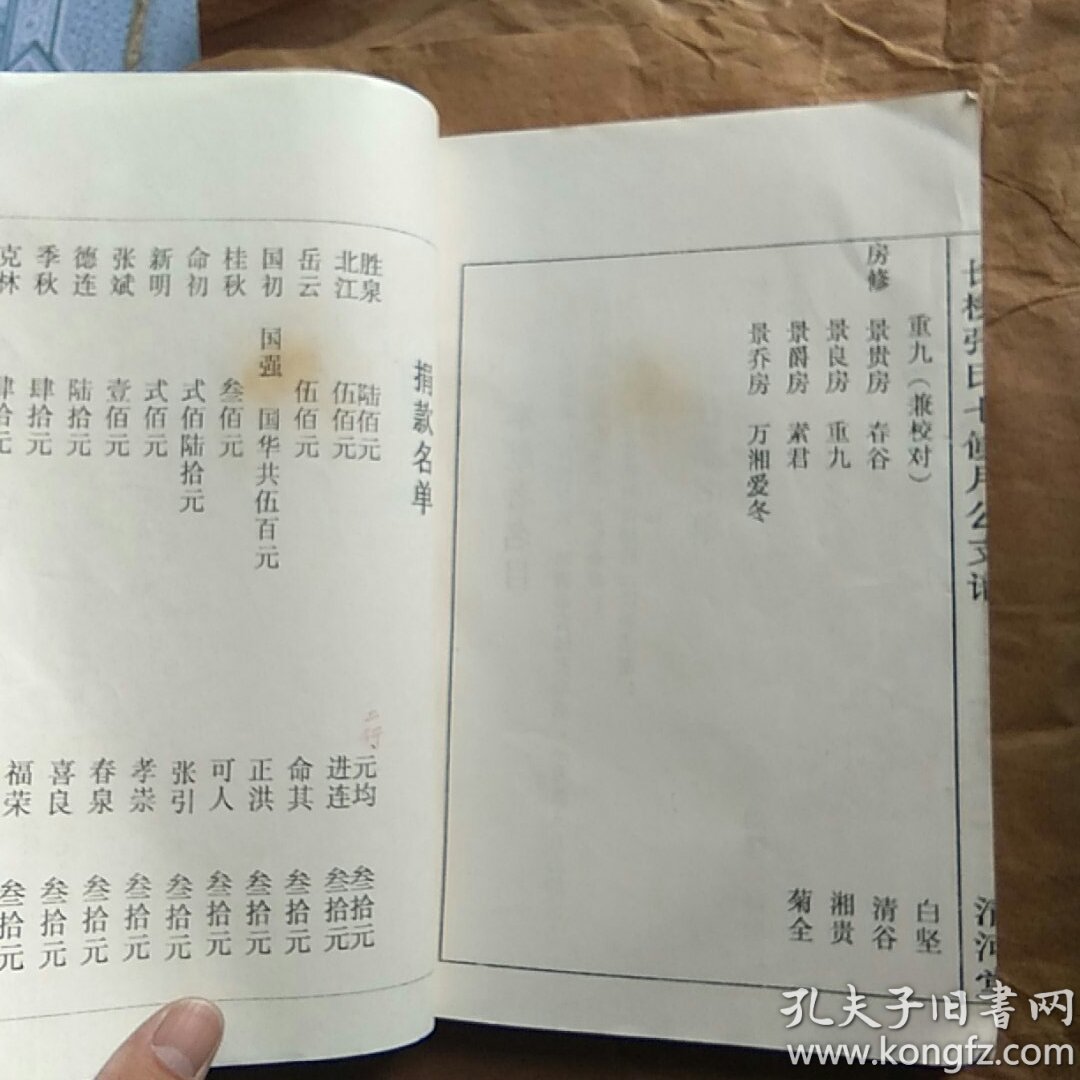 清河堂
重九（兼校对） 白坚
房修 景贵房 春谷 清谷
景良房 重九 湘贵
景爵房 素君 菊全
景乔房 万湘爱冬
捐款名单
胜泉 陆佰元 二行、元均 叁拾元
北江 伍佰元 进连 叁拾元
岳云 伍佰元 命其 叁拾元
国初 国强 国华共伍百元 正洪 叁拾元
桂秋 叁佰元 可人 叁拾元
命初 式佰陆拾元 张引 叁拾元
新明 式佰元 孝崇 叁拾元
张斌 壹佰元 春泉 叁拾元
德连 陆拾元 喜良 叁拾元
季秋 肆拾元 福荣 叁拾元
克林 肆拾元
孔夫子旧书网
www.kongfz.com